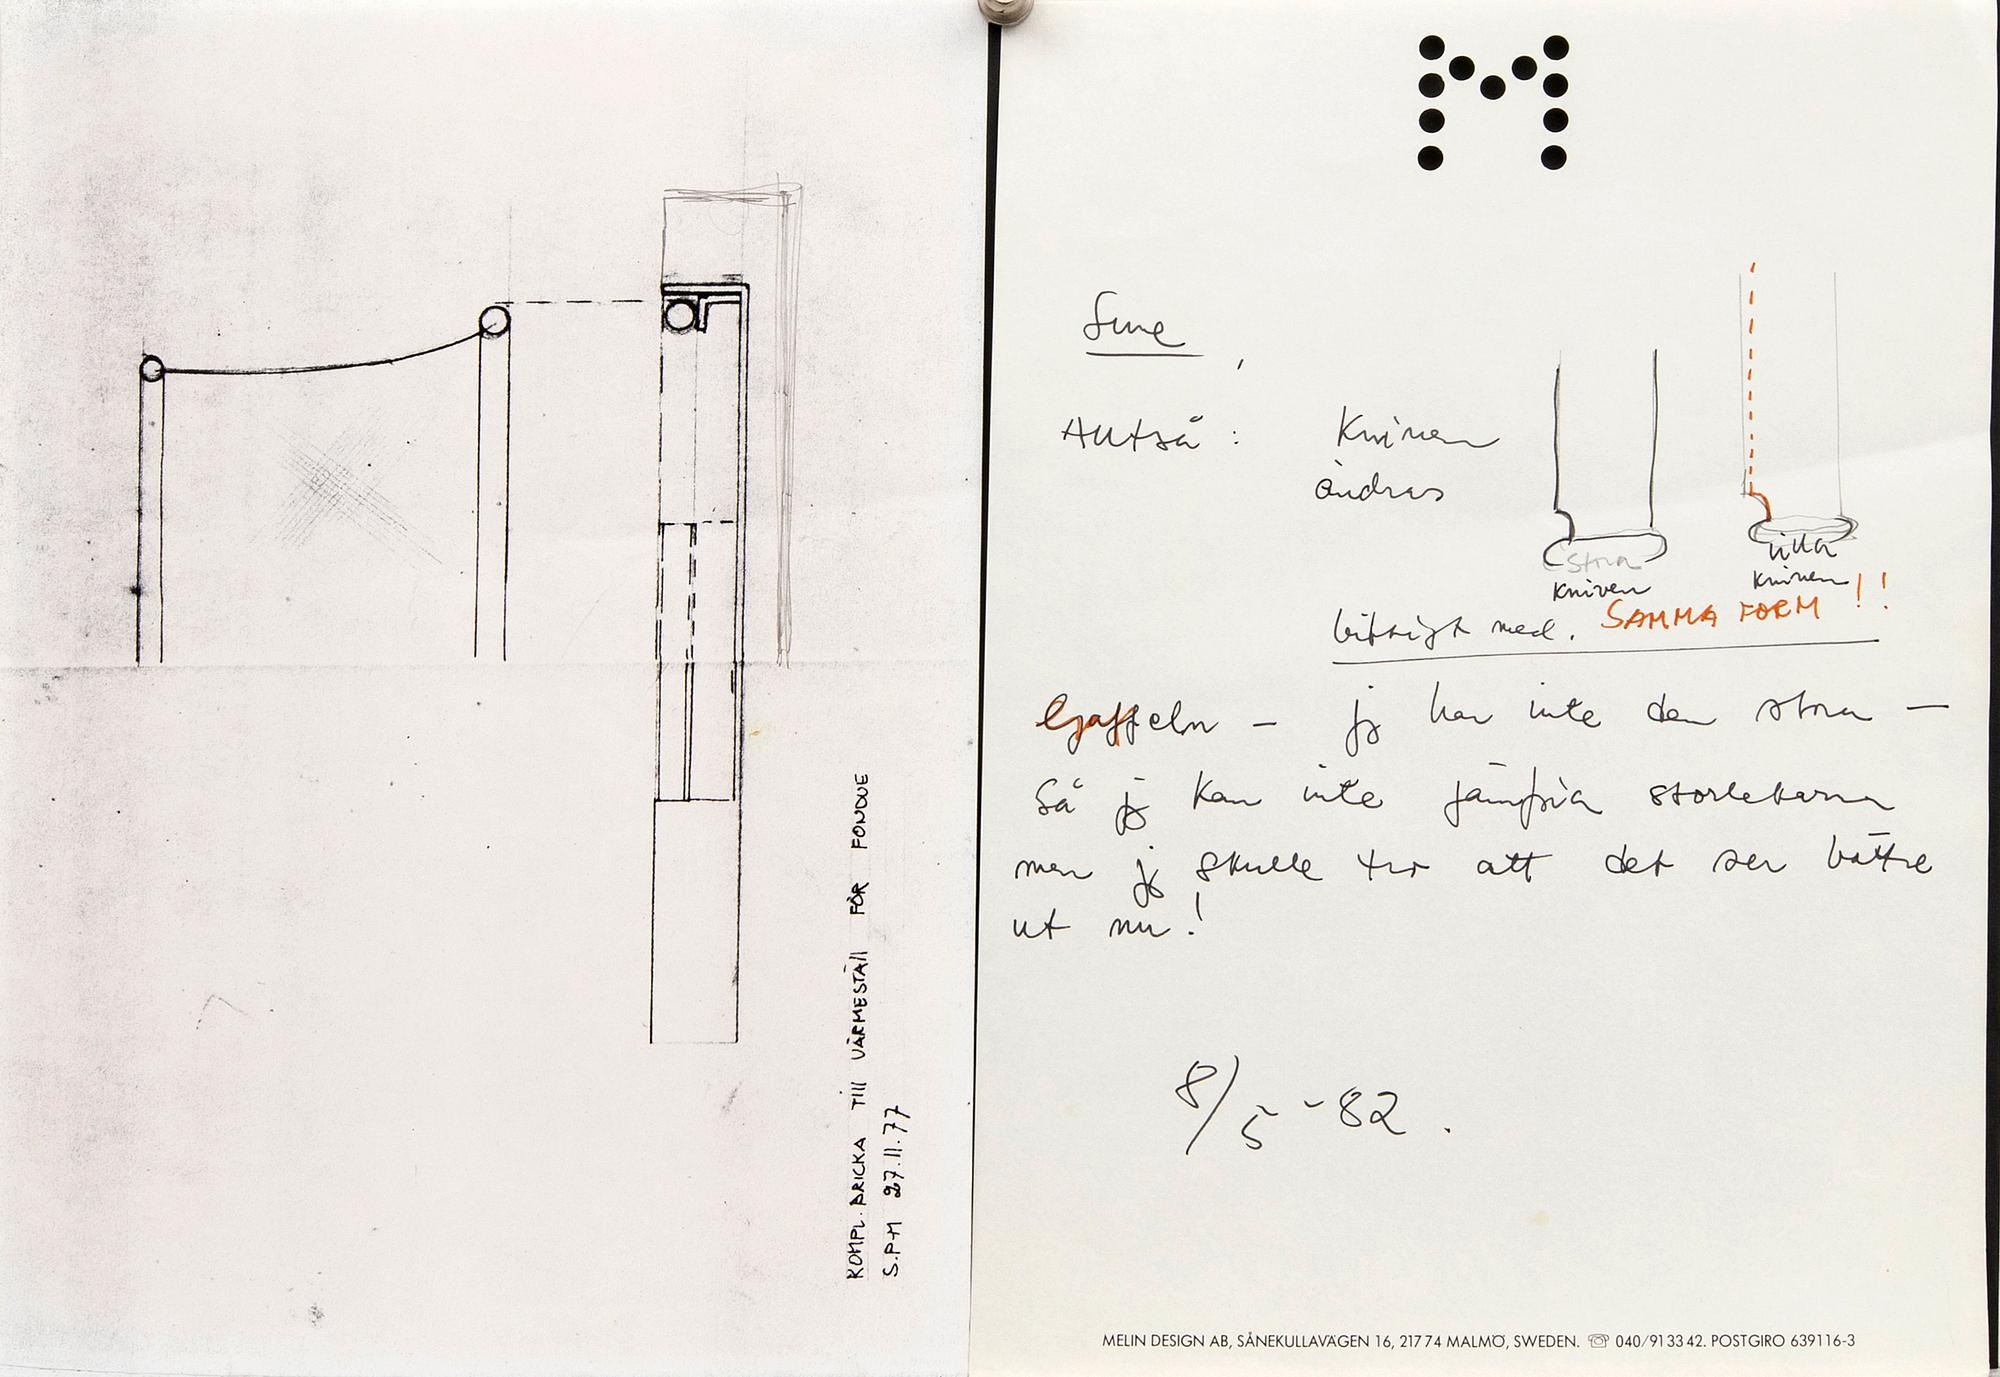 KOMPL. BRICKA TILL VÄRMESTÄLL FÖR FONDUE
S.P-M 27.11.77
M
Sune,
Alltså: Kniven
ändras
Stora
kniven
lilla
kniven!!
viktigt med. SAMMA FORM
Gaffeln – jg har inte den stora –
Så jg kan inte jämföra storlekarna
men jg skulle tro att det ser bättre
ut nu!
8/5 -82.
MELIN DESIGN AB, SÅNEKULLAVÄGEN 16, 217 74 MALMÖ, SWEDEN. ☏ 040/91 33 42. POSTGIRO 639116-3